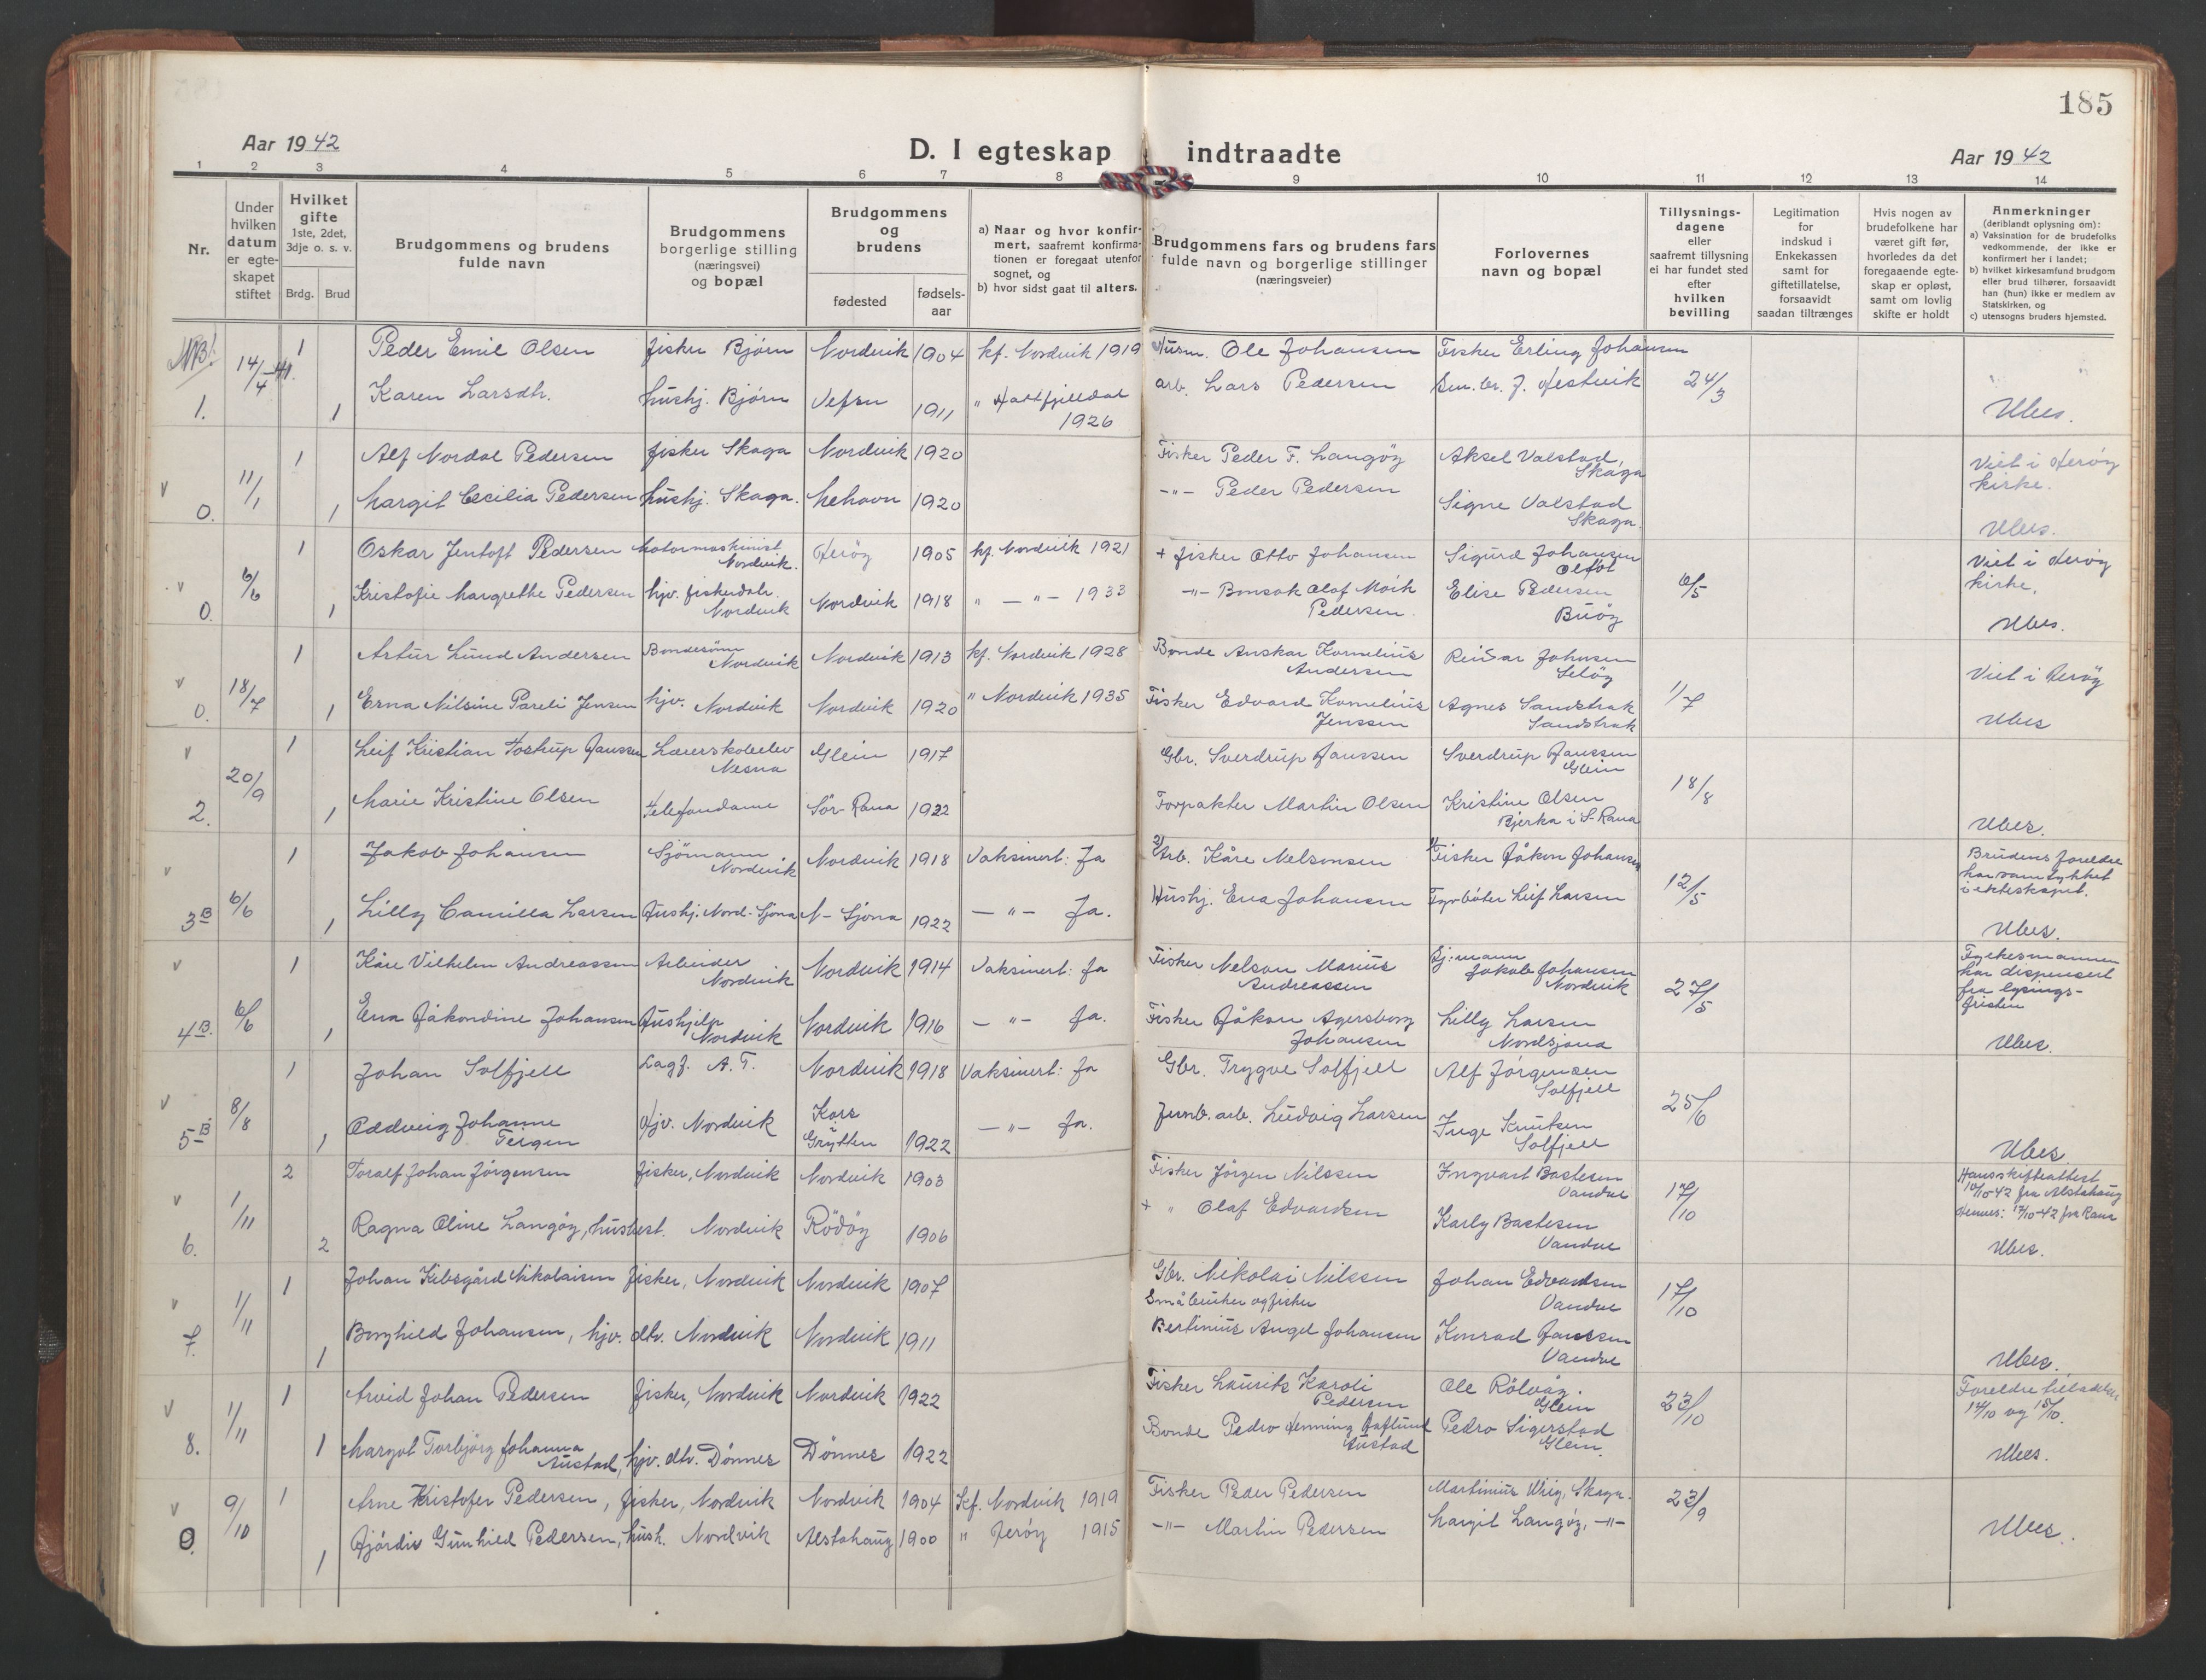 185
Aar 1942
D. I egteskap indtraadte
Aar 1942
1 2 3 4 5 6 7 8 9 10 11 12 13 14
Nr.
Under
hvilken
datum
er egte-
skapet
stiftet
Hvilket
gifte
1ste, 2det,
3dje o. s. v.
Brdg. Brud
Brudgommens og brudens
fulde navn
Brudgommens
borgerlige stilling
(næringsvei)
og bopæl
Brudgommens
og
brudens
fødested
fødsels-
aar
a) Naar og hvor konfir-
mert, saafremt konfirma-
tionen er foregaat utenfor
sognet, og
b) hvor sidst gaat til alters.
Brudgommens fars og brudens fars
fulde navn og borgerlige stillinger
(næringsveier)
Forlovernes
navn og bopæl
Tillysnings-
dagene
eller
saafremt tillysning
ei har fundet sted
efter
hvilken
bevilling
Legitimation
for
indskud i
Enkekassen
samt for
giftetillatelse,
forsaavidt
saadan tiltrænges
Hvis nogen av
brudefolkene har
været gift før,
hvorledes da det
foregaaende egte-
skap er opløst,
samt om lovlig
skifte er holdt
Anmerkninger
(deriblandt oplysning om):
a) Vaksination for de brudefolks
vedkommende, der ikke er
konfirmert her i landet;
b) hvilket kirkesamfund brudgom
eller brud tilhører, forsaavidt
han (hun) ikke er medlem av
Statskirken, og
c) utensogns bruders hjemsted.
NB! 14/4-41. 1 Peder Emil Olsen fisker Bjørn Nordvik 1904 kf. Nordvik 1919 Husm. Ole Johansen Fisker Erling Johansen
1. 1 Karen Larsdtr. hushj. Bjørn Vefsn 1911 " Hattfjelldal arb. Lars Pedersen J. Hestvik 24/3
1926
Ubes.
1 Alf Nordal Pedersen fisker Skaga Nordvik 1920 Fisker Peder F. Langöy Aksel Valstad, Viet i Herøy
Skaga kirke.
v 0. 11/1 1 Margit Cecilia Pedersen hushj. Skaga. Mehavn 1920 -"- Peder Pedersen Signe Valstad
Skaga. Ubes.
1 Oskar Jentoft Pedersen Motormaskinist Herøy 1905 kf. Nordvik 1921 + fisker Otto Johansen Sigurd Johansen Viet i Herøy
Nordvik. kirke.
v 0. 6/6 1 Kristofie Margrethe Pedersen hjv. fiskerdatr. Nordvik 1918 " -"- 1933 -"- Bonsak Olaf Moik Elise Pedersen 6/5
Nordvik Pedersen Buöy Ubes.
1 Artur Lund Andersen Bondesönn Nordvik 1913 kf. Nordvik 1928 Bonde Anskar Kornelius Reidar Johnsen
Nordvik Andersen Selöy Viet i Herøy
v 0. 18/7 1 Erna Nilsine Pareli Jensen hjv. Nordvik Nordvik 1920 " Nordvik 1935 Fisker Edvard Kornelius Agnes Sandstrak 1/7
Jenssen Sandstrak Ubes
v 1 Leif Kristian Tostrup Hanssen Lærerskoleelev Glein 1917 Gbr. Sverdrup Hanssen Sverdrup Hanssen
Nesna Glein
2. 20/9 1 Marie Kristine Olsen Telefondame Sör-Rana 1922 Forpakter Martin Olsen Kristine Olsen 18/8
Bjerka i S-Rana Ubes.
v 1 Jakob Johansen Sjömann Nordvik 1918 Vaksinert: Ja Arb. Kåre Nelsonsen Fisker Håkon Johansen Brudens foreldre
Nordvik har samtykket
i ekteskapet.
3 B 6/6 1 Lilly Camilla Larsen Hushj. Nord-Sjona N-Sjona 1922 -"- Ja. Hushj. Ena Johansen Fyrböter Leif Larsen 12/5
Ubes.
v 1 Kåre Vilhelm Andreassen Arbeider Nordvik 1914 Vaksinert: Ja Fisker Nelson Marius Sj:mann Fylkesmannen
Nordvik Andreassen Jakob Johansen har dispensert
Nordvik fra lysings-
fristen
4 B. 6/6 1 Ena Håkondine Johansen Hushjelp Nordvik 1916 -"- Ja. Fisker Håkon Agersborg Lilly Larsen 27/5
Nordvik Johansen Nordsjona Ubes.
1 Johan Solfjell Lagf. A.T. Nordvik 1918 Vaksinert: Ja Gbr. Trygve Solfjell Alf Jörgensen
Solfjell
v 5 B 8/8 1 Oddveig Johanne hjv. Nordvik Kors i 1922 -"- Ja. Jernb. arb. Ludvig Larsen Inge Knutsen 25/6
Teigen Grytten Solfjell Ubes.
2 Toralf Johan Jörgensen fisker, Nordvik Nordvik 1903 Fisker Jörgen Nilssen Ingvart Bastesen Hans skifteattest
Vandve 10/10-42 fra Alstahaug
v 6. 1/11 2 Ragna Oline Langöy, husbest. Nordvik Rödöy 1906 + " Olaf Edvardsen Karly Bastesen 17/10 Hennes: 12/10-42 fra Rana
Vandve Ubes.
1 Johan Kibsgård Nikolaisen fisker, Nordvik Nordvik 1907 Gbr. Nikolai Nilssen Johan Edvardsen
Småbruker og fisker Vandve
v 7. 1/11 1 Borghild Johansen, hjv. dtr. Nordvik Nordvik 1911 Bertinius Angel Johansen Konrad Hanssen 17/10
Vandve Ubes.
1 Arvid Johan Pedersen fisker, Nordvik Nordvik 1922 Fisker Laurits Karoli Ole Rölvåg. Foreldre tilladelse
Pedersen Glein 14/10 og 15/10.
v 8. 1/11 1 Margot Torbjörg Johanna Bonde Pedro Henning Haflund Pedro Sigerstad 23/10
Austad, hjv. dtr. Dönnes Dönnes 1922 Austad Glein. Ubes.
v 9/10 1 Arne Kristofer Pedersen, fisker, Nordvik Nordvik 1904 Kf. Nordvik 1919 Fisker Peder Pedersen Martinius Wiig, Skaga. 23/9
0. 1 Hjördis Gunhild Pedersen, hush. Nordvik Alstahaug 1900 " Herøy 1915 -"- Martin Pedersen Margit Langöy, -"- Ubes.